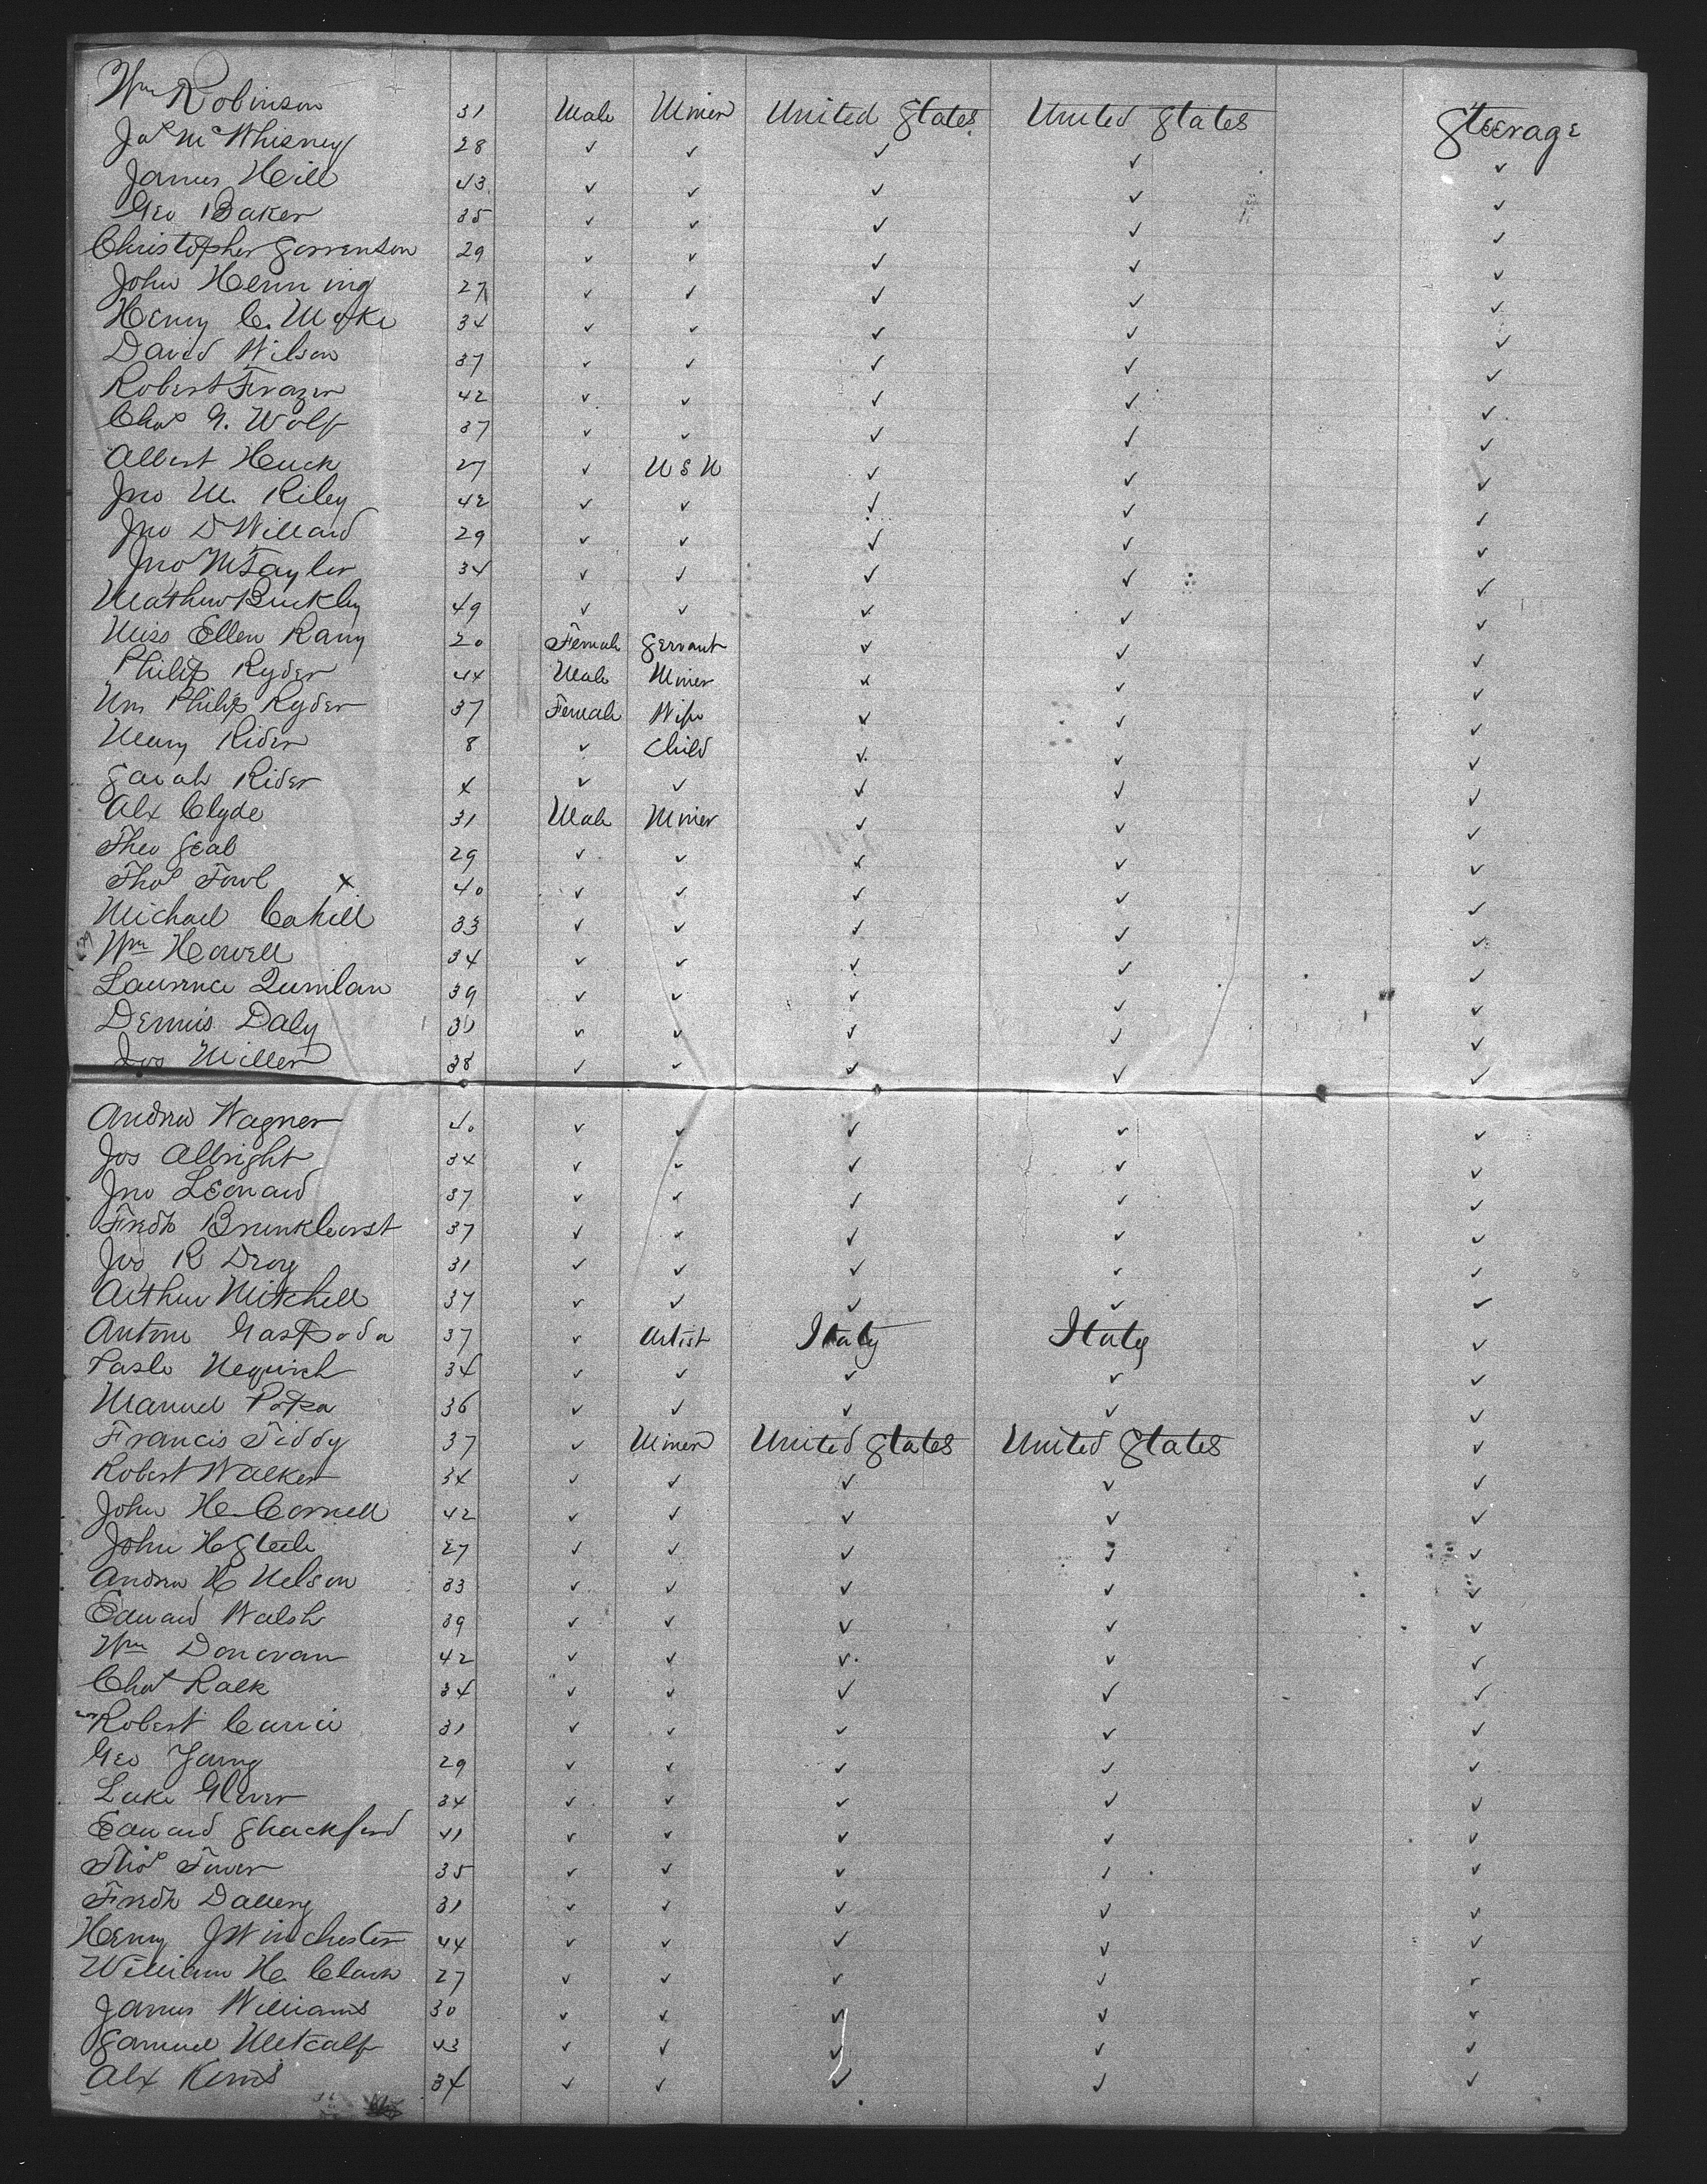 Wm Robinson 31 Male Miner United States United States Steerage
Jas McWhisney 28 ✓ ✓ ✓ ✓ ✓
James Hill 43 ✓ ✓ ✓ ✓ ✓
Geo Baker 35 ✓ ✓ ✓ ✓ ✓
Christopher Sorrenson 29 ✓ ✓ ✓ ✓ ✓
John Henning 27 ✓ ✓ ✓ ✓ ✓
Henry C. 34 ✓ ✓ ✓ ✓ ✓
David Wilson 37 ✓ ✓ ✓ ✓ ✓
Robert Frazer 42 ✓ ✓ ✓ ✓ ✓
Chas G. Wolf 37 ✓ ✓ ✓ ✓ ✓
Albert Huck 27 ✓ U S N ✓ ✓ ✓
Jno M. Riley 42 ✓ ✓ ✓ ✓ ✓
Jno D Willard 29 ✓ ✓ ✓ ✓ ✓
Jno M Taylor 34 ✓ ✓ ✓ ✓ ✓
Mathew Buckley 49 ✓ ✓ ✓ ✓ ✓
Miss Ellen Rany 20 Female Servant ✓ ✓ ✓
Philip Ryder 44 Male Miner ✓ ✓ ✓
Mrs Philip Ryder 37 Female Wife ✓ ✓ ✓
Mary Rider 8 ✓ Child ✓ ✓ ✓
Sarah Rider 4 ✓ ✓ ✓ ✓ ✓
Alx Clyde 31 Male Miner ✓ ✓ ✓
Theo Seal 29 ✓ ✓ ✓ ✓ ✓
Thos Fowl x 40 ✓ ✓ ✓ ✓ ✓
Michael Cahill 33 ✓ ✓ ✓ ✓ ✓
Wm Howell 34 ✓ ✓ ✓ ✓ ✓
Laurence Quinlan 39 ✓ ✓ ✓ ✓ ✓
Dennis Daly ✓ ✓ ✓ ✓ ✓
Jos Miller 38 ✓ ✓ ✓ ✓ ✓
Andrew Wagner 40 ✓ ✓ ✓ ✓ ✓
Jos Albright 34 ✓ ✓ ✓ ✓ ✓
Jno Leonard 37 ✓ ✓ ✓ ✓ ✓
Fredk Brunkhorst 37 ✓ ✓ ✓ ✓ ✓
Jos R Drory 31 ✓ ✓ ✓ ✓ ✓
Arthur Mitchell 37 ✓ ✓ ✓ ✓ ✓
Antone Gaspoda 37 ✓ Artist Italy Italy ✓
34 ✓ ✓ ✓ ✓ ✓
Manuel 36 ✓ ✓ ✓ ✓ ✓
Francis Tiddy 37 ✓ Miner United States United States ✓
Robert Walker 34 ✓ ✓ ✓ ✓ ✓
John H Cornell 42 ✓ ✓ ✓ ✓ ✓
John H Steele 27 ✓ ✓ ✓ ✓ ✓
Andrew H Nelson 33 ✓ ✓ ✓ ✓ ✓
Edward Walsh 39 ✓ ✓ ✓ ✓ ✓
Wm Donovan 42 ✓ ✓ ✓ ✓ ✓
Chas Ralk 34 ✓ ✓ ✓ ✓ ✓
Robert Currie 31 ✓ ✓ ✓ ✓ ✓
Geo Young 29 ✓ ✓ ✓ ✓ ✓
Luke Glover 34 ✓ ✓ ✓ ✓ ✓
Edward Shackford 41 ✓ ✓ ✓ ✓ ✓
Thos Tower 35 ✓ ✓ ✓ ✓ ✓
Fredk Dalberg 31 ✓ ✓ ✓ ✓ ✓
Henry J Winchester 44 ✓ ✓ ✓ ✓ ✓
William H. Clark 27 ✓ ✓ ✓ ✓ ✓
James Williams 30 ✓ ✓ ✓ ✓ ✓
Samuel Metcalf 43 ✓ ✓ ✓ ✓ ✓
Alx Kerns 34 ✓ ✓ ✓ ✓ ✓